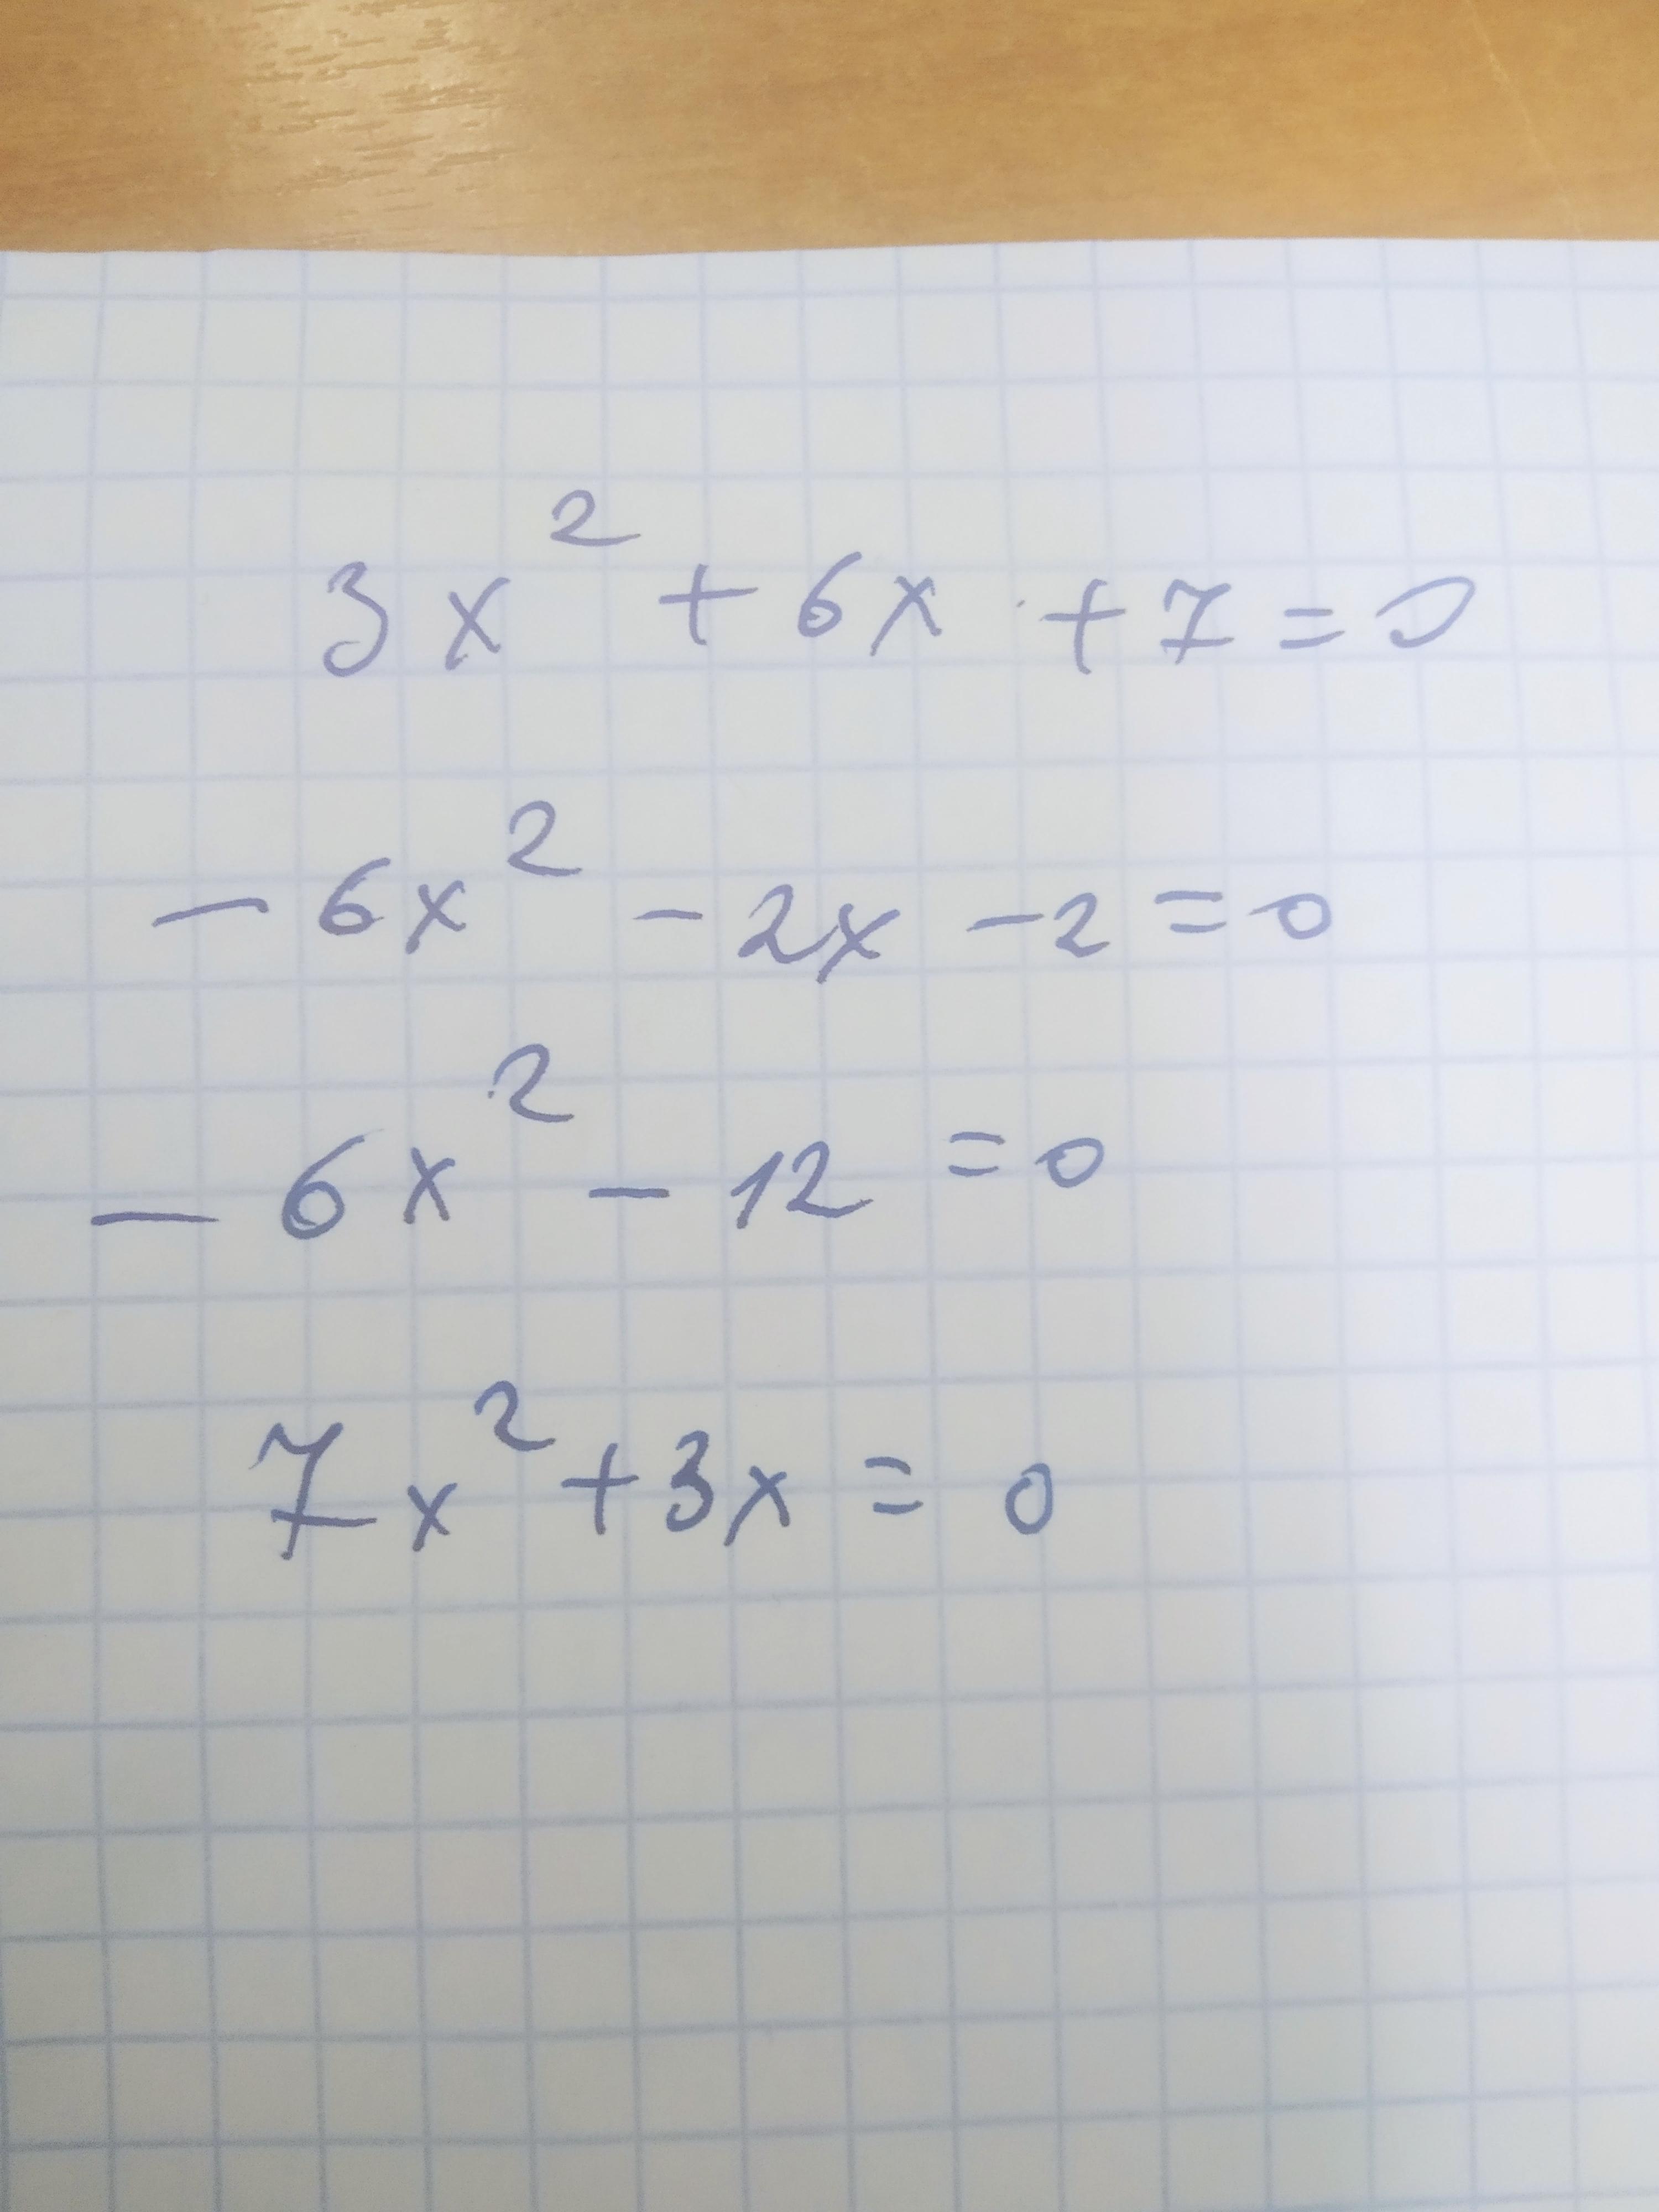 3x² + 6x + 7 = 0
- 6x² - 2x - 2 = 0
- 6x² - 12 = 0
7x² + 3x = 0